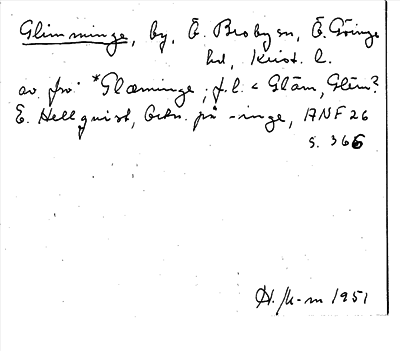 Glimminge, by, Ö. Broby sn, Ö. Göinge
hd, Krist. l.
av. fro. *Glæminge, f.l. < Glām, Glēm?
E. Hellquist, Ortn. på -inge, ANF 26
s. 366
H. /k-m 1951